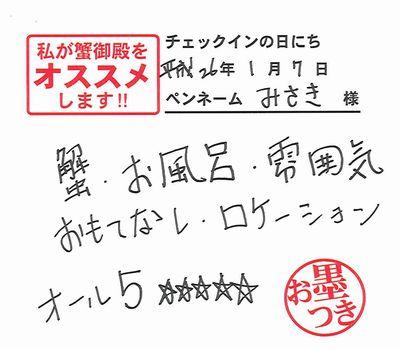 私が蟹御殿を
オススメ
します!!
チェックインの日にち
平成26年1月7日
ペンネーム みさき 様
蟹・お風呂・雰囲気
おもてなし・ロケーション
オール5 ☆☆☆☆☆
お墨つき